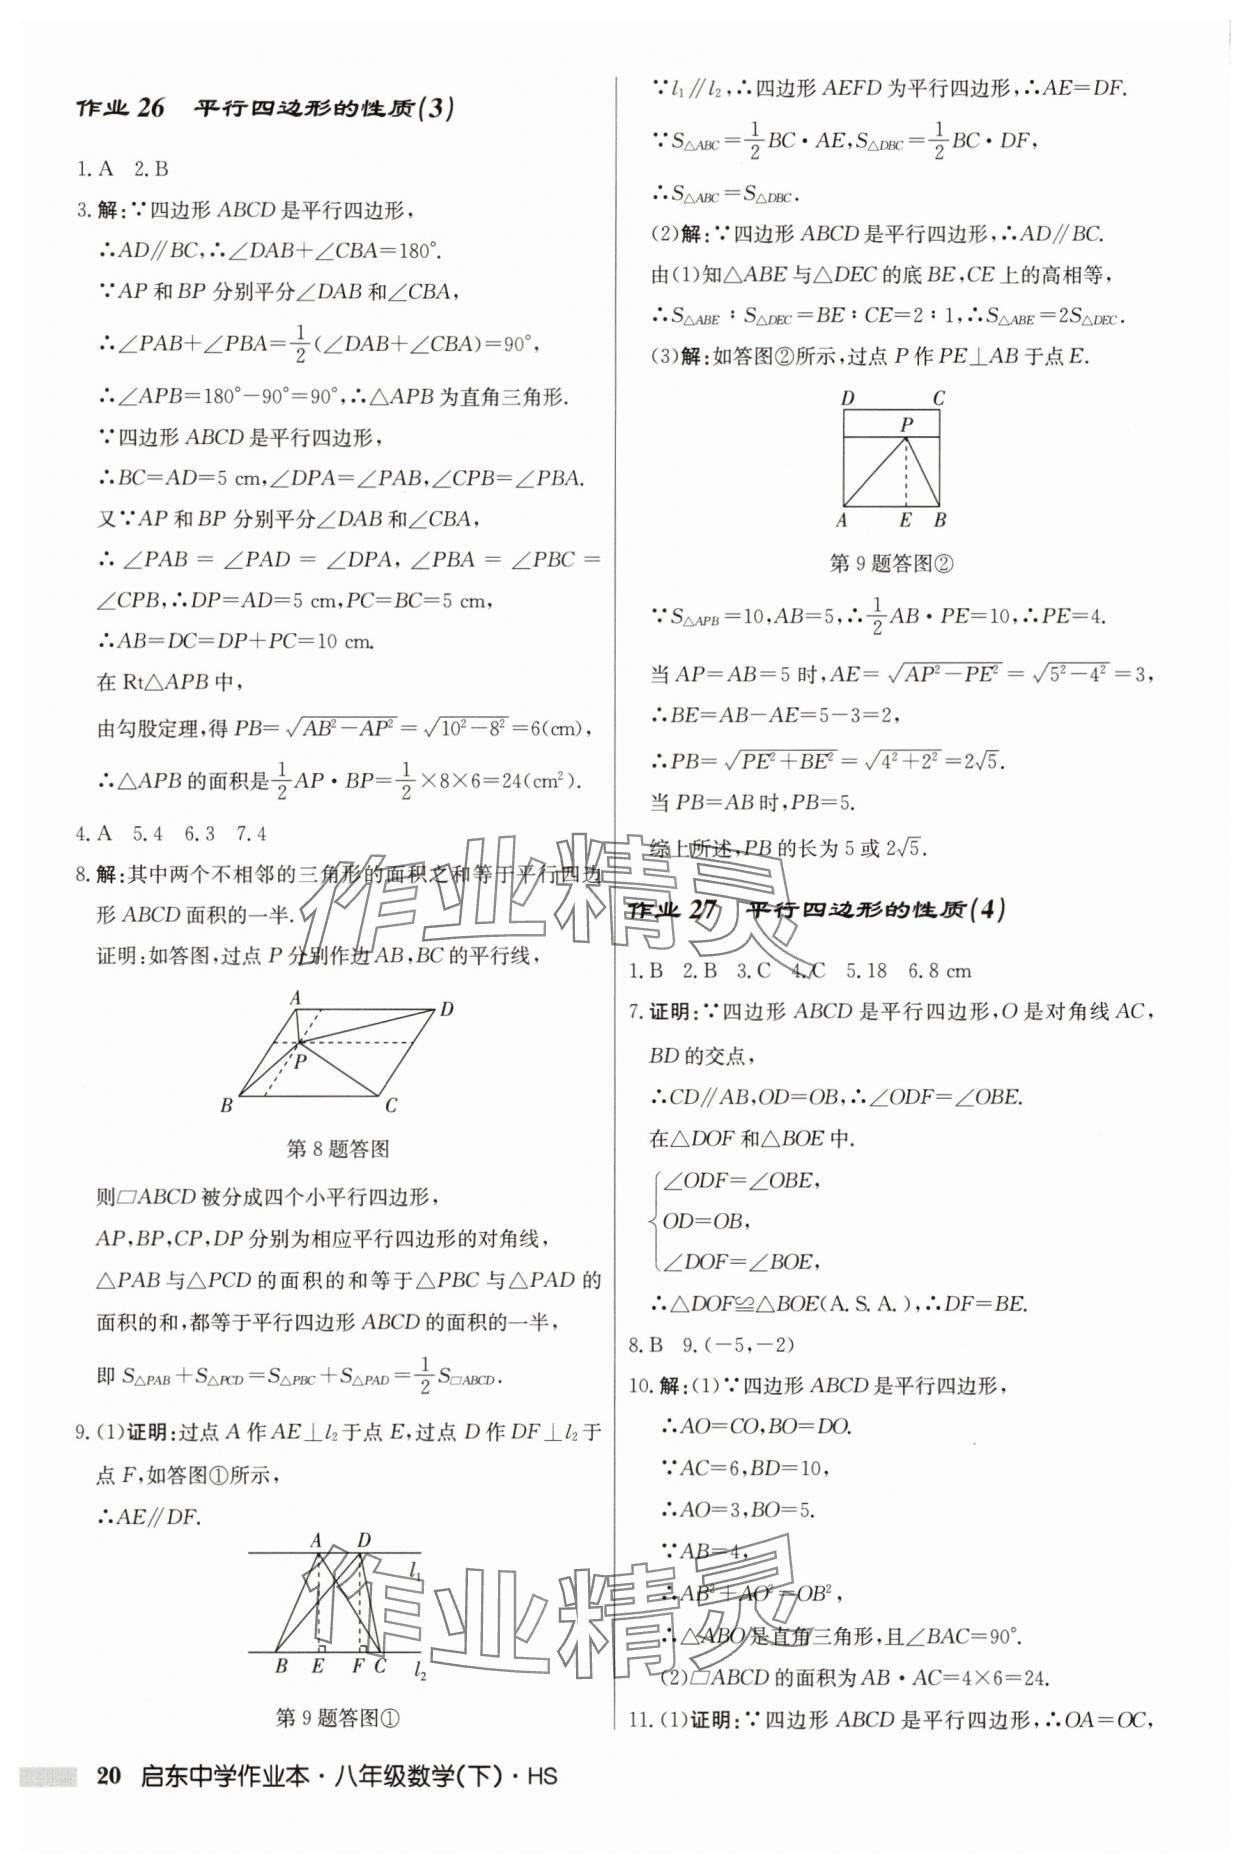 作业 26 平行四边形的性质(3)
1. A 2. B
3. 解:∵四边形 ABCD 是平行四边形,
∴AD∥BC,∴∠DAB+∠CBA=180°.
∵AP 和 BP 分别平分∠DAB 和∠CBA,
∴∠PAB+∠PBA=1/2(∠DAB+∠CBA)=90°,
∴∠APB=180°-90°=90°,∴△APB 为直角三角形.
∵四边形 ABCD 是平行四边形,
∴BC=AD=5 cm,∠DPA=∠PAB,∠CPB=∠PBA.
又∵AP 和 BP 分别平分∠DAB 和∠CBA,
∴ ∠PAB = ∠PAD = ∠DPA, ∠PBA = ∠PBC =
∠CPB,∴DP=AD=5 cm,PC=BC=5 cm,
∴AB=DC=DP+PC=10 cm.
在 Rt△APB 中,
由勾股定理,得 PB=√(AB²-AP²)=√(10²-8²)=6(cm),
∴△APB 的面积是1/2AP·BP=1/2×8×6=24(cm²).
4. A 5. 4 6. 3 7. 4
8. 解:其中两个不相邻的三角形的面积之和等于平行四边
形 ABCD 面积的一半.
证明:如答图,过点 P 分别作边 AB,BC 的平行线,
A D
P
B C
第 8 题答图
则▱ABCD 被分成四个小平行四边形,
AP,BP,CP,DP 分别为相应平行四边形的对角线,
△PAB 与△PCD 的面积的和等于△PBC 与△PAD 的
面积的和,都等于平行四边形 ABCD 的面积的一半,
即 S△PAB+S△PCD=S△PBC+S△PAD=1/2S▱ABCD.
9. (1)证明:过点 A 作 AE⊥l₂于点 E,过点 D 作 DF⊥l₂于
点 F,如答图①所示,
∴AE∥DF.
A D
l₁
B E F C l₂
第 9 题答图①
∵l₁∥l₂,∴四边形 AEFD 为平行四边形,∴AE=DF.
∵S△ABC=1/2BC·AE,S△DBC=1/2BC·DF,
∴S△ABC=S△DBC.
(2)解:∵四边形 ABCD 是平行四边形,∴AD∥BC.
由(1)知△ABE 与△DEC 的底 BE,CE 上的高相等,
∴S△ABE∶S△DEC=BE∶CE=2∶1,∴S△ABE=2S△DEC.
(3)解:如答图②所示,过点 P 作 PE⊥AB 于点 E.
D C
P
A E B
第 9 题答图②
∵S△APB=10,AB=5,∴1/2AB·PE=10,∴PE=4.
当 AP=AB=5 时,AE=√(AP²-PE²)=√(5²-4²)=3,
∴BE=AB-AE=5-3=2,
∴PB=√(PE²+BE²)=√(4²+2²)=2√5.
当 PB=AB 时,PB=5.
综上所述,PB 的长为 5 或 2√5.
作业 27 平行四边形的性质(4)
1. B 2. B 3. C 4. C 5. 18 6. 8 cm
7. 证明:∵四边形 ABCD 是平行四边形,O 是对角线 AC,
BD 的交点,
∴CD∥AB,OD=OB,∴∠ODF=∠OBE.
在△DOF 和△BOE 中.
∠ODF=∠OBE,
OD=OB,
∠DOF=∠BOE,
∴△DOF≌△BOE(A. S. A. ),∴DF=BE.
8. B 9. (-5,-2)
10. 解:(1)∵四边形 ABCD 是平行四边形,
∴AO=CO,BO=DO.
∵AC=6,BD=10,
∴AO=3,BO=5.
∵AB=4,
∴AB²+AO²=OB²,
∴△ABO 是直角三角形,且∠BAC=90°.
(2)▱ABCD 的面积为 AB·AC=4×6=24.
11. (1)证明:∵四边形 ABCD 是平行四边形,∴OA=OC,
作业精灵
作业精灵
20 启东中学作业本·八年级数学(下)·HS